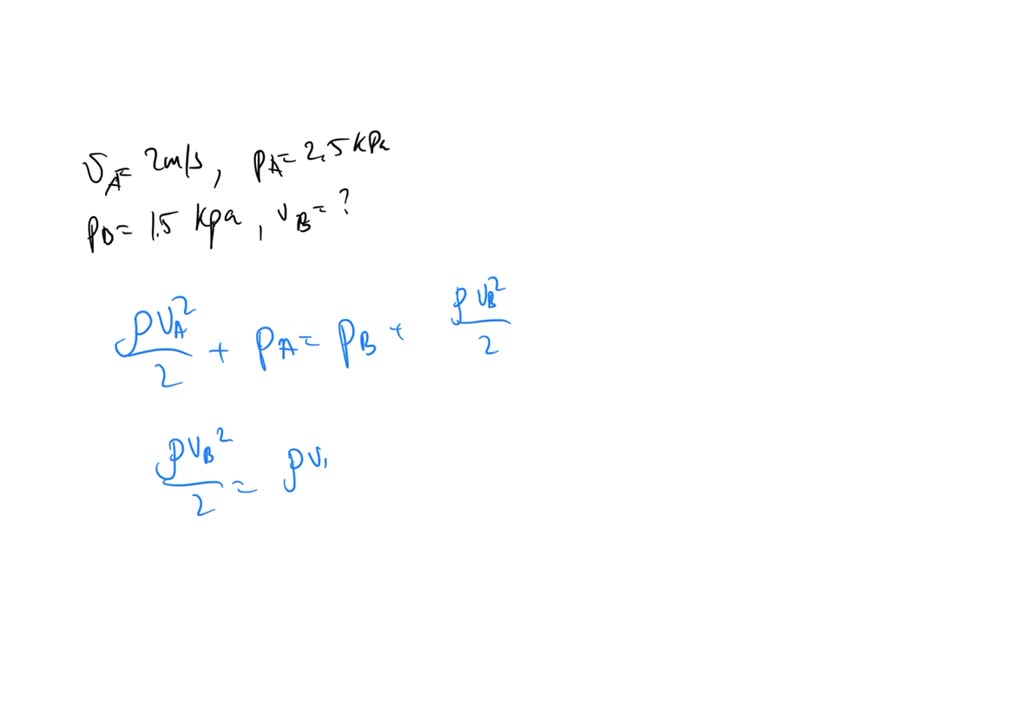 v_A = 2m/s, p_A = 2,5 kPa
p_B = 1.5 kpa, v_B = ?
ρv_A²/2 + p_A = p_B + ρv_B²/2
ρv_B²/2 = ρv